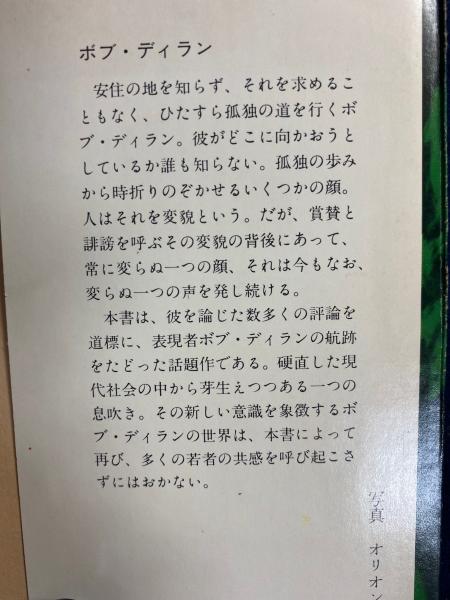 ボブ・ディラン
安住の地を知らず、それを求めるこ
ともなく、ひたすら孤独の道を行くボ
ブ・ディラン。彼がどこに向かおうと
しているか誰も知らない。孤独の歩み
から時折りのぞかせるいくつかの顔。
人はそれを変貌という。だが、賞賛と
誹謗を呼ぶその変貌の背後にあって、
常に変らぬ一つの顔、それは今もなお、
変らぬ一つの声を発し続ける。
本書は、彼を論じた数多くの評論を
道標に、表現者ボブ・ディランの航跡
をたどった話題作である。硬直した現
代社会の中から芽生えつつある一つの
息吹き。その新しい意識を象徴するボ
ブ・ディランの世界は、本書によって
再び、多くの若者の共感を呼び起こさ
ずにはおかない。
写真 オリオン